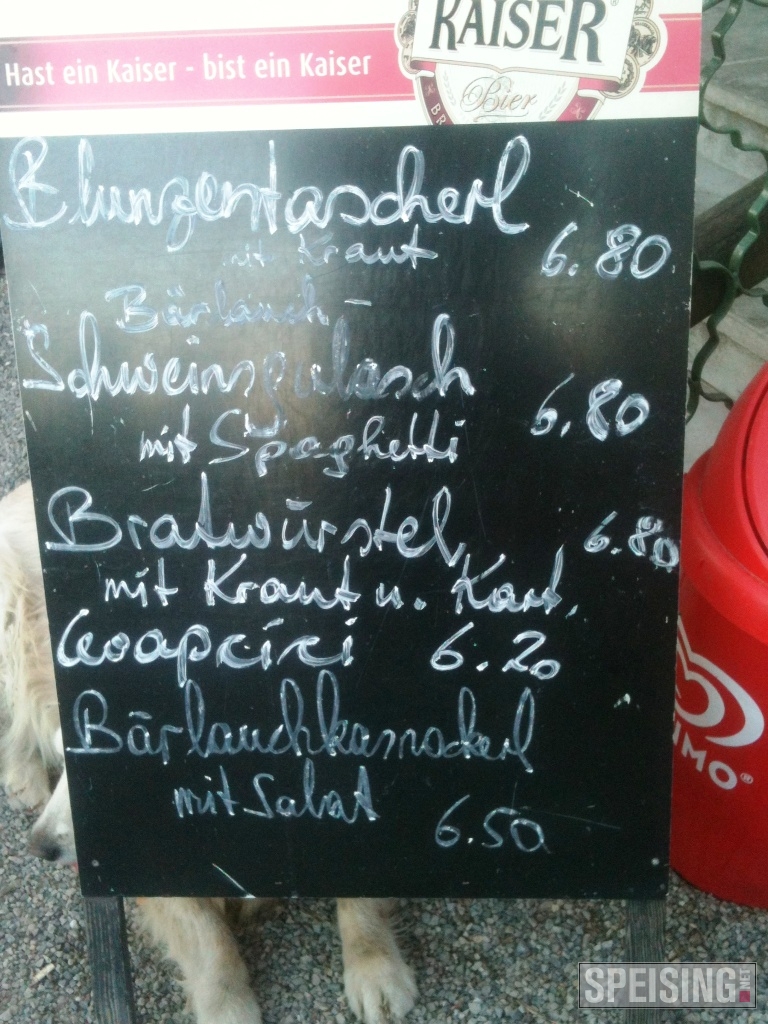 KAISER
Hast ein Kaiser - bist ein Kaiser
Bier
BR
Blunzentascherl
mit Kraut 6.80
Bärlauch-
Schweinsgulasch
mit Spaghetti 6.80
Bratwürstel 6.80
mit Kraut u. Kart.
6.20
Bärlauchkasnockerl
mit Salat
6.50
UMO
SPEISING.NET